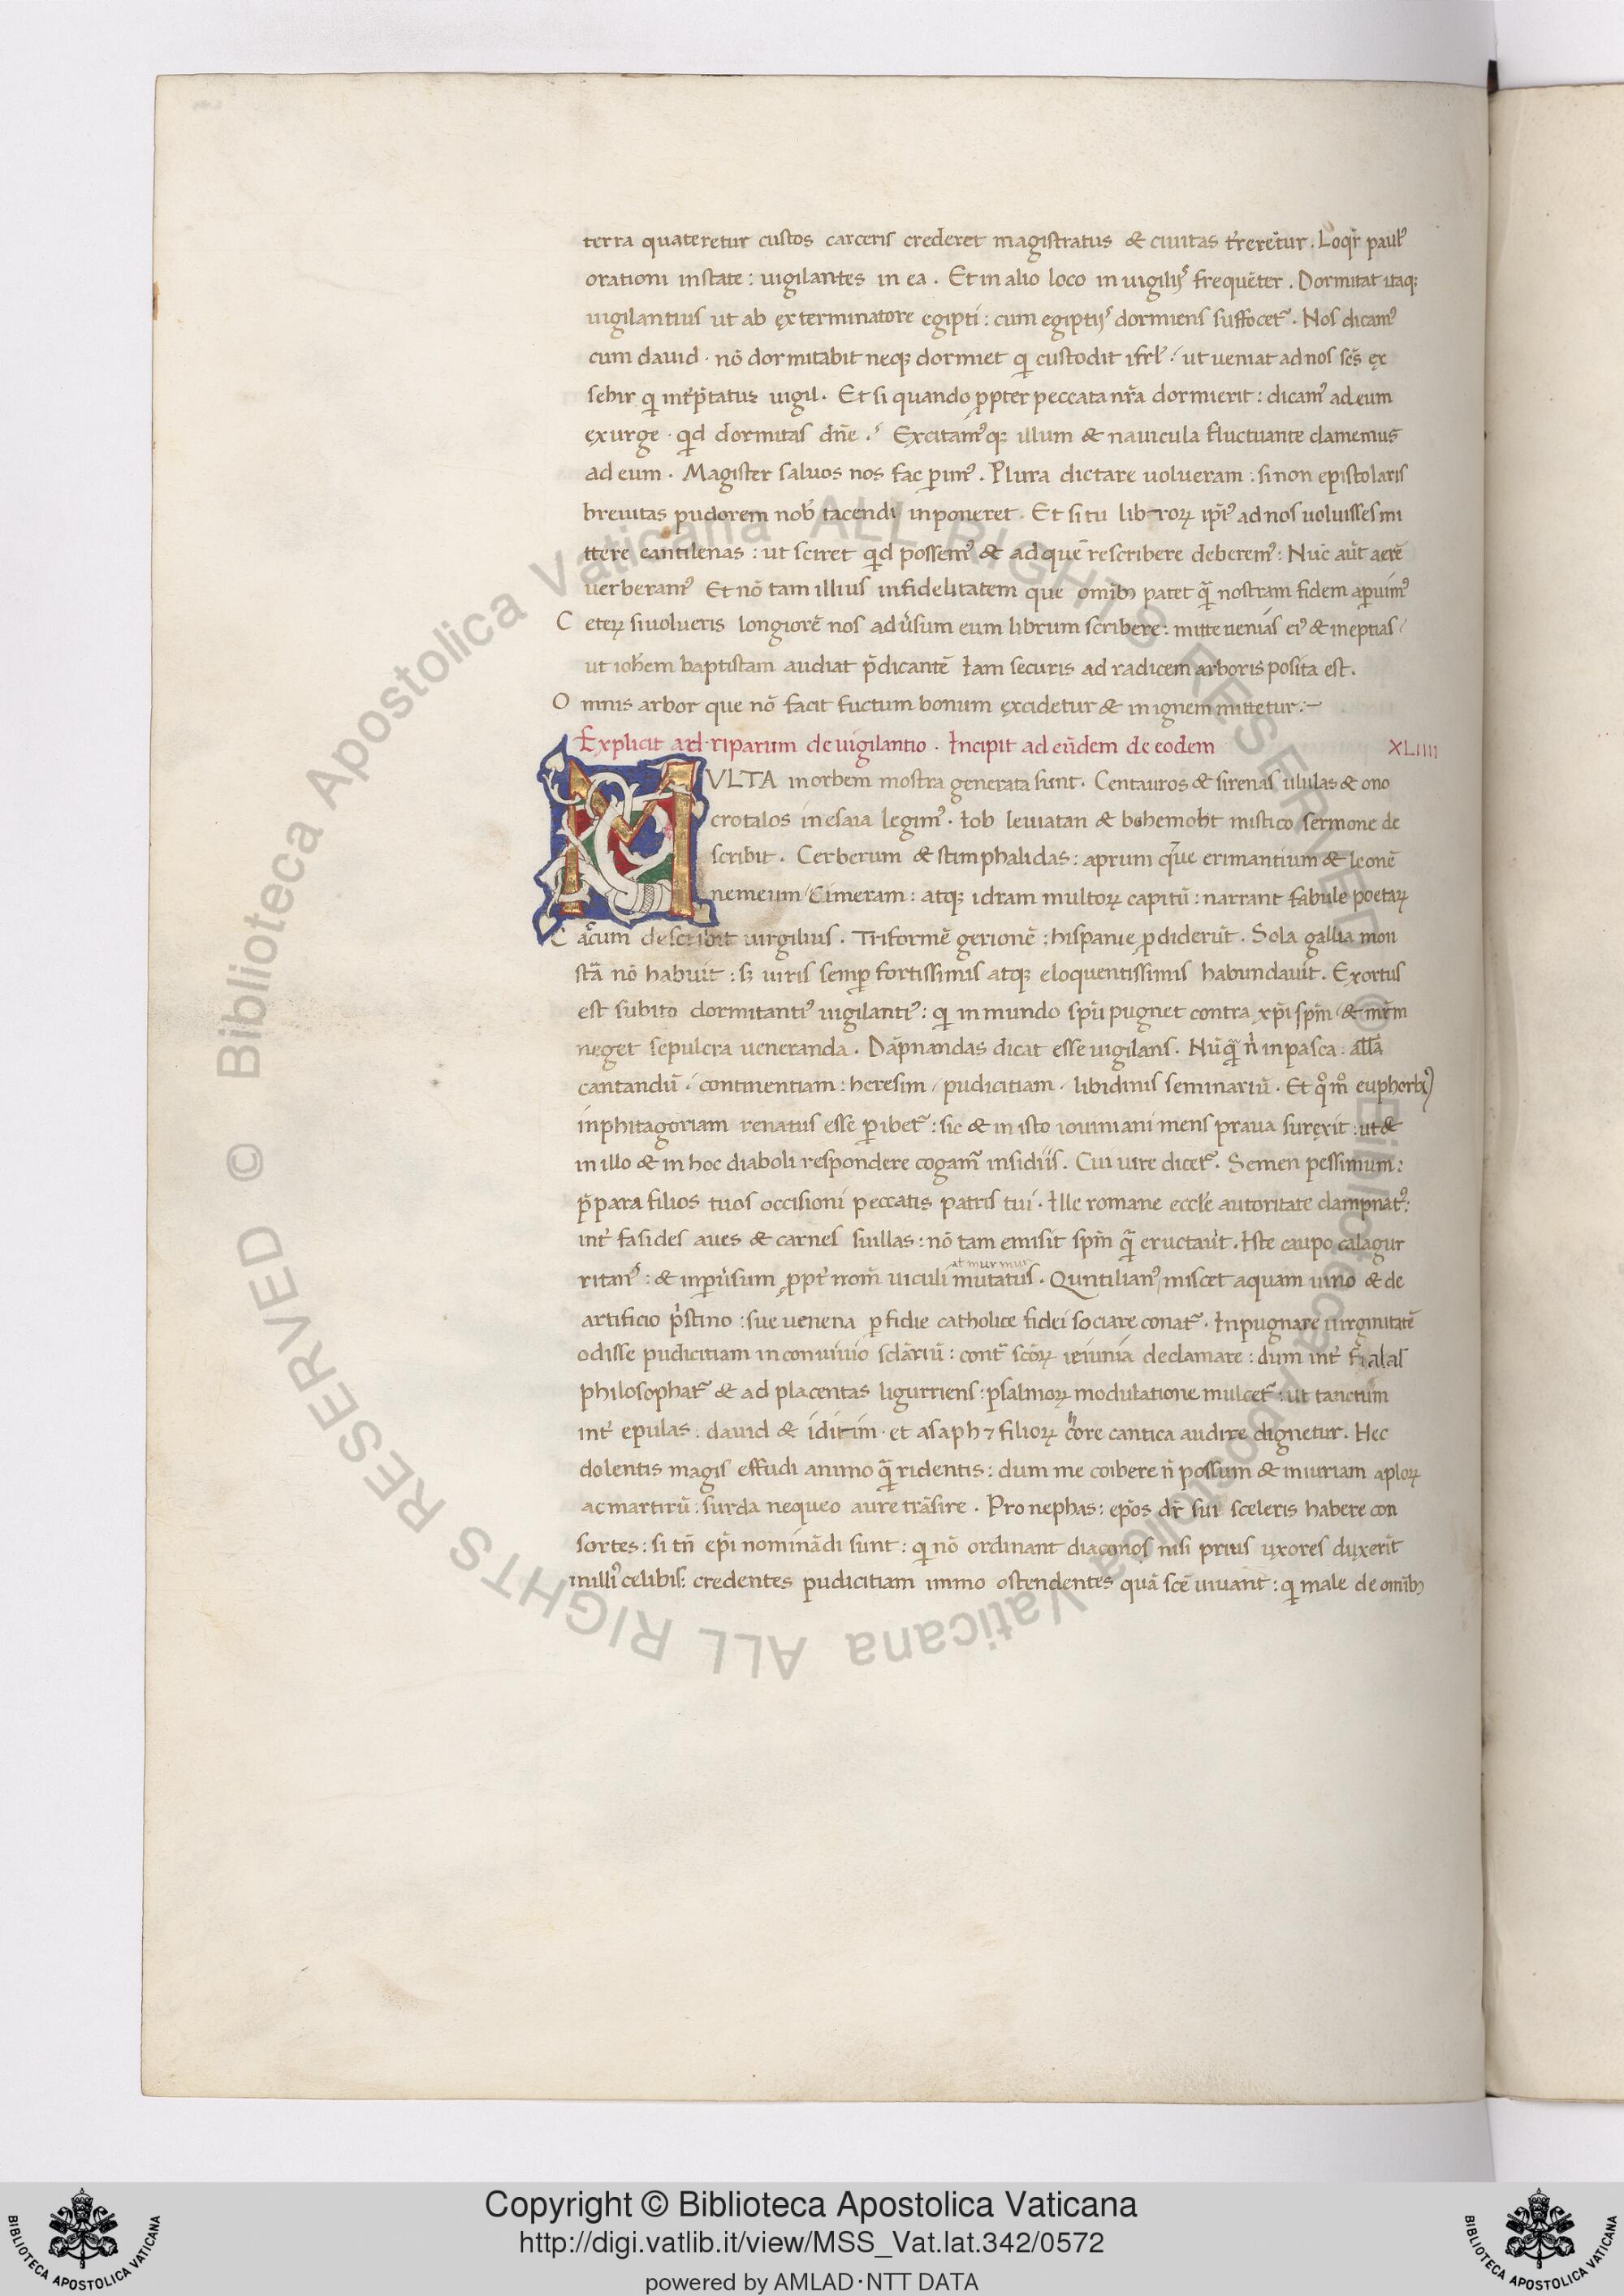 terra quateretur custos carceris crederet magistratus & ciuitas t̃reret̃ur . Loqr̃ paul᾽
orationi instate : uigilantes in ea . Et in alio loco in uigilijs frequẽter . Dormitat itaqꝫ
uigilantius ut ab ęxterminatore egipti : cum egiptijs dormiens suffocet᷑ . Nos dicam᾽
cum dauid · nõ dormitabit neqꝫ dormiet qͥ custodit isrł ./ ut ueniat ad nos sc̃s ęx
sehir qͥ int̃p̃tatur uigil . Et si quando ꝓpter peccata nr̃a dormierit : dicam᾽ ad eum
ęxurge · qͥd dormitas dñe . Excitam᾽qꝫ illum & nauicula fluctuante clamemus
ad eum . Magister saluos nos fac ꝑim᾽ . Plura dictare uolueram : si non epistolaris
breuitas pudorem nob̃ tacendi inponeret . Et si tu libroꝝ ip̃i᾽ ad nos uoluisses mi
ttere cantilenas : ut sciret qͥd possem᾽ & ad quẽ rescribere deberem᾽ : Nũc aũt aerẽ
uerberam᾽ Et nõ tam illius infidelitatem que omĩbꝫ patet qᷓ nostram fidem aꝑuim᾽
Ceteꝝ si uolueris longiorẽ nos adũsum eum librum scribere : mitte nenias ei᾽ & ineptias /
ut ioh̃em baptistam audiat p̃dicantẽ Iam securis ad radicem arboris posita est .
Omnis arbor que nõ facit fuctum bonum ęxcidetur & in ignem mittetur :~
Explicit ad · riparum de uigilantio . Incipit ad eũdem de eodem XLIIII
MVLTA in orbem mostra generata sunt . Centauros & sirenas ululas & ono
crotalos in esaia legim᾽ . Iob leuiatan & bohemoht mistico sermone de
scribit . Cerberum & stimphalidas : aprum qᷓue erimantium & leonẽ
nemeum / Cimeram : atqꝫ idram multoꝝ capitũ : narrant fabule poetaꝝ
Cacum describit uirgilius . Triformẽ gerionẽ : hispanie ꝓdiderũt . Sola gallia mon
stᷓa nõ habuit : sꝫ uiris semꝑ fortissimis atqꝫ eloquentissimis habundauit . Exortus
est subito dormitanti᾽ uigilanti᾽ : qͥ in mundo spũ pugnet contra xp̃i spm̃ / & mr̃m
neget sepulcra ueneranda . Dãpnandas dicat esse uigilans . Nũqᷓ ñ in pasca : all̃a
cantandũ / continentiam : heresim / pudicitiam / libidinis seminariũ . Et qͦmͦ euphorbi᾽
in phitagoriam renatus esse ꝑibet᷑ : sic & in isto iouiniani mens praua suręxit : ut &
in illo & in hoc diaboli respondere cogam᷑ insidiis . Cui iure dicet᷑ . Semen pessimum :
p̃para filios tuos occisioni peccatis patris tui . Ille romane eccl̃e autoritate dampnat᾽ :
int̃ fasides aues & carnes suillas : nõ tam emisit spm̃ qᷓ eructauit . Iste caupo calagur
ritan᾽ : & in ꝑũsum ꝓpt̃ nom̃ uiculi mutatus . Quntilian᾽ miscet aquam uino & de
at mur mur
artificio pͥstino : sue uenena ꝑfidie catholice fidei sociare conat᷑ . Inpugnare uirginitatẽ
odisse pudicitiam in conuiuio sclãriũ : contᷓ scõꝝ ieiunia declamare : dum int̃ fialas
philosophat᷑ & ad placentas ligurriens : psalmoꝝ modulatione mulcet᷑ : ut tanctum
int̃ epulas : dauid & iditim · et asaph ⁊ filioꝝ chore cantica audire dignetur . Hec
dolentis magis effudi animo qᷓ ridentis : dum me coibere ñ possum & iniuriam aploꝝ
ac martirũ : surda nequeo aure trãsire . Pro nephas : ep̃os dr̃ sui sceleris habere con
sortes : si tñ ep̃i nominãdi sunt : qͥ nõ ordinant diaconos nisi prius uxores duxerĩt
nulli᾽ celibis : credentes pudicitiam immo ostendentes quã sc̃e uiuant : qͥ male de omĩbꝫ
Biblioteca Apostolica Vaticana ALL RIGHTS RESERVED ©
Copyright © Biblioteca Apostolica Vaticana
http://digi.vatlib.it/view/MSS_Vat.lat.342/0572
powered by AMLAD·NTT DATA
BIBLIOTECA APOSTOLICA VATICANA
BIBLIOTECA APOSTOLICA VATICANA